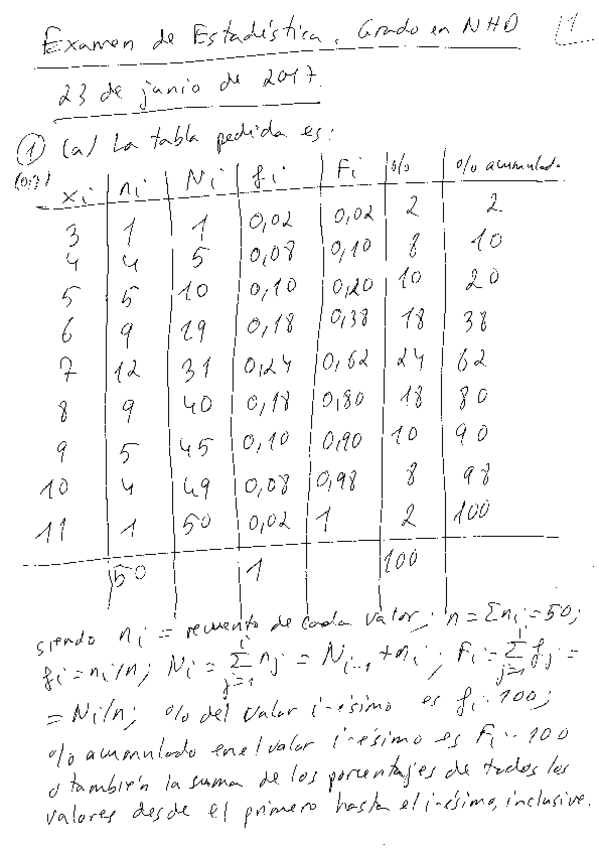 Examen de Estadística. Grado en NHD 1
23 de junio de 2017.
① (a) La tabla pedida es:
xi ni Ni fi Fi % % acumulado
3 1 1 0,02 0,02 2 2
4 4 5 0,08 0,10 8 10
5 5 10 0,10 0,20 10 20
6 9 19 0,18 0,38 18 38
7 12 31 0,24 0,62 24 62
8 9 40 0,18 0,80 18 80
9 5 45 0,10 0,90 10 90
10 4 49 0,08 0,98 8 98
11 1 50 0,02 1 2 100
50 1 100
siendo ni = recuento de cada valor; n = Σni = 50;
fi = ni/n; Ni = Σ(j=1, i) nj = Ni-1 + ni; Fi = Σ(j=1, i) fj =
= Ni/n; % del valor i-ésimo es fi·100;
% acumulado en el valor i-ésimo es Fi·100
o también la suma de los porcentajes de todos los
valores desde el primero hasta el i-ésimo, inclusive.